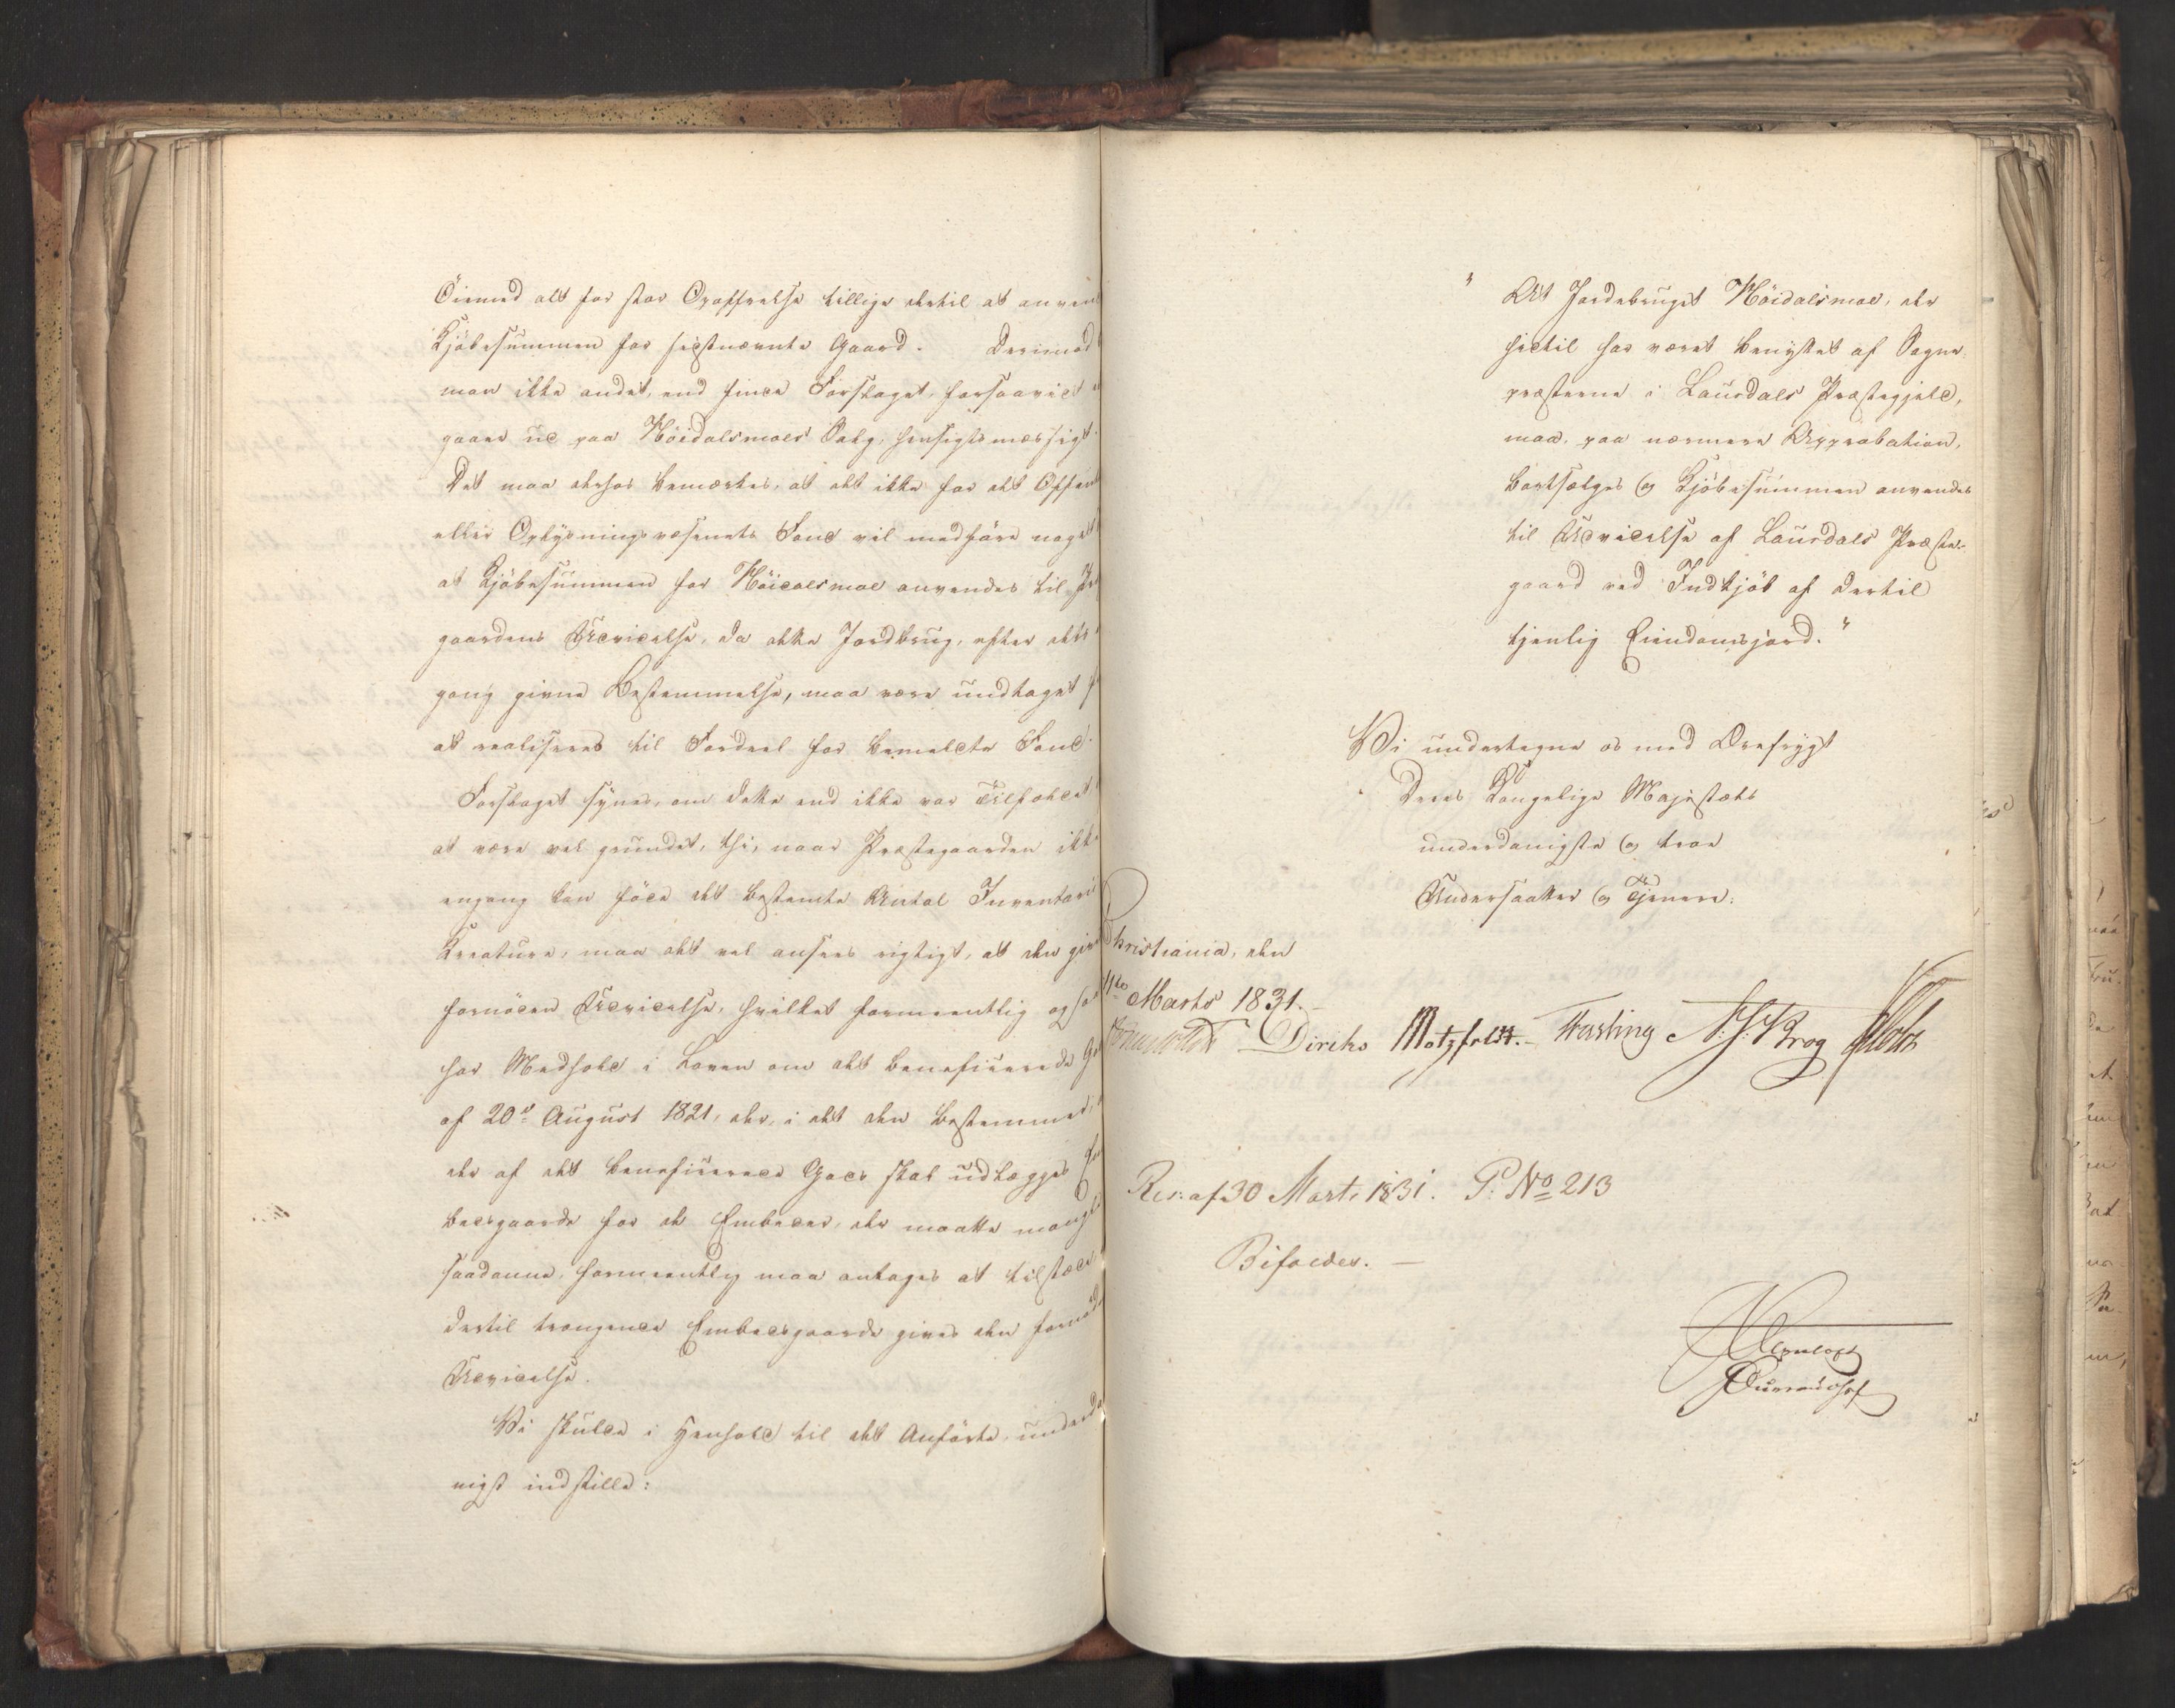 Öiemed alt for stor Opoffrelse tillige dertil at anven
Kjöbesummen for sidstnævnte Gaard. Derimod
man ikke andet, end finde Forslaget, forsaavidt
gaaer ud paa Höidalsmoes Salg, hensigtsmæssigt.
Det maa derhos bemærkes, at det ikke for det Offent
eller Oplysningsvæsenets Fond vil medföre noget
at Kjöbesummen for Höidalsmoe anvendes til Præ
gaardens Udvidelse, da dette Jordbrug, efter den
gang givne Bestemmelse, maa være undtaget f
at realiseres til Fordeel for bemeldte Fond.
Forslaget synes, om dette end ikke var Tilfældet
at være vel grundet, thi, naar Præstegaarden ikke
engang kan föde det bestemte Antal Inventarii
Kreature, maa det vel ansees rigtigt, at den give
fornöden Udvidelse, hvilket formeentlig ogsaa
har Medhold i Loven om det beneficerede Go
af 20d August 1821, der, i det den bestemmer,
der af det beneficerede Gods skal udlægges Em
bedsgaarde for de Embeder, der maatte mangle
saadanne, formeentlig maa antages at tilstæde
dertil trængende Embedsgaarde gives den fornödn
Udvidelse.
Vi skulde i Henhold til det Anförte, underda
nigst indstille:
" At Jordebruget Höidalsmoe, der
hidtil har været benyttet af Sogne-
præsterne i Laurdals Præstegjeld,
maa, paa nærmere Approbation,
bortsælges og Kjöbesummen anvendes
til Udvidelse af Laurdals Præste-
gaard ved Indkjöb af dertil
tjenlig Eiendomsjord."
Vi undertegne os med Ærefrygt
Deres Kongelige Majestæts
underdanigste og troe
Undersaatter og Tjenere.
Christiania, den
Marts 1831.
Diriks Motzfeldt. Fasting N. J. Krog
Res: af 30 Marts 1831. P: No 213
Bifaldes. —